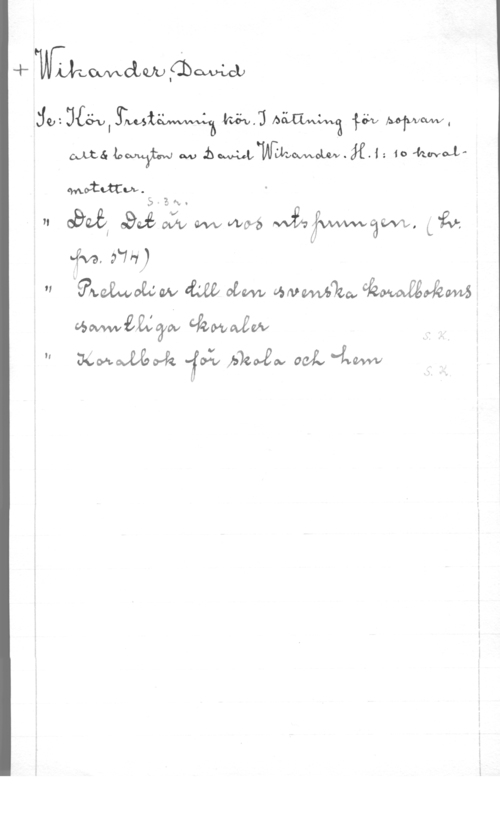 + Wikander, David
Se: Kör, Trestämmig kör. I sättning för sopran,
alt & baryton av David Wikander. H. 1: 10 koral-
motetter.
S. 3 R.
" Det, Det är en ros utsprungen. (Sv.
ps. 374)
" Preludier till den svenska koralbokens
samtliga koraler
S. K.
" Koralbok för skola och hem
S. K.